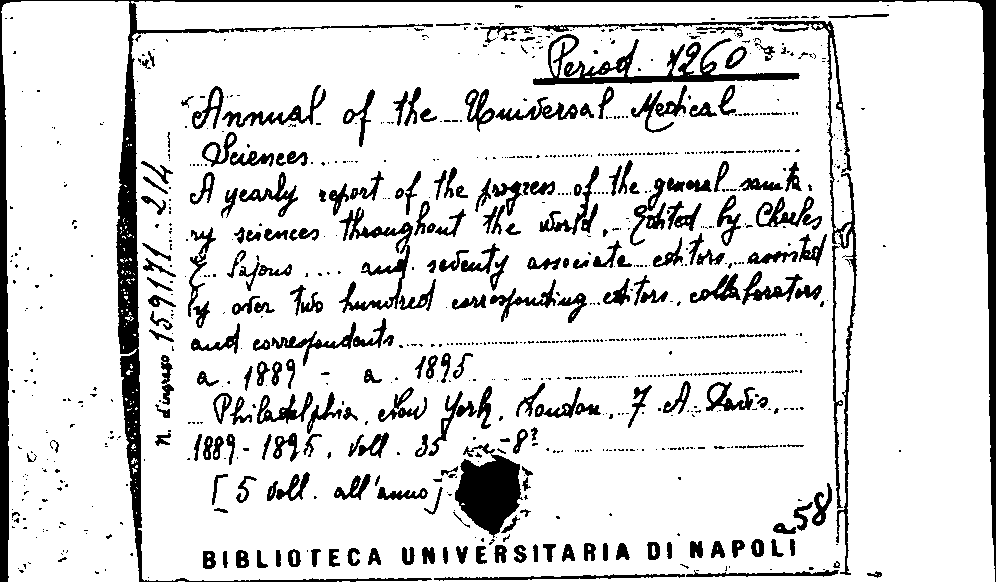 Period. 1260
Annual of the Universal Medical
Sciences
A yearly report of the progress of the general sanita-
ry sciences throughout the world. Edited by Charles
E. Sajous .... and seventy associate editors, assisted
by over two hundred corresponding editors, collaborators,
and correspondents.
a. 1889 - a. 1895
Philadelphia, New York, London, F. A. Davis,
1889-1895, voll. 35 in-8º
[5 voll. all'anno]
a58
BIBLIOTECA UNIVERSITARIA DI NAPOLI
n. d'ingresso 159171-214